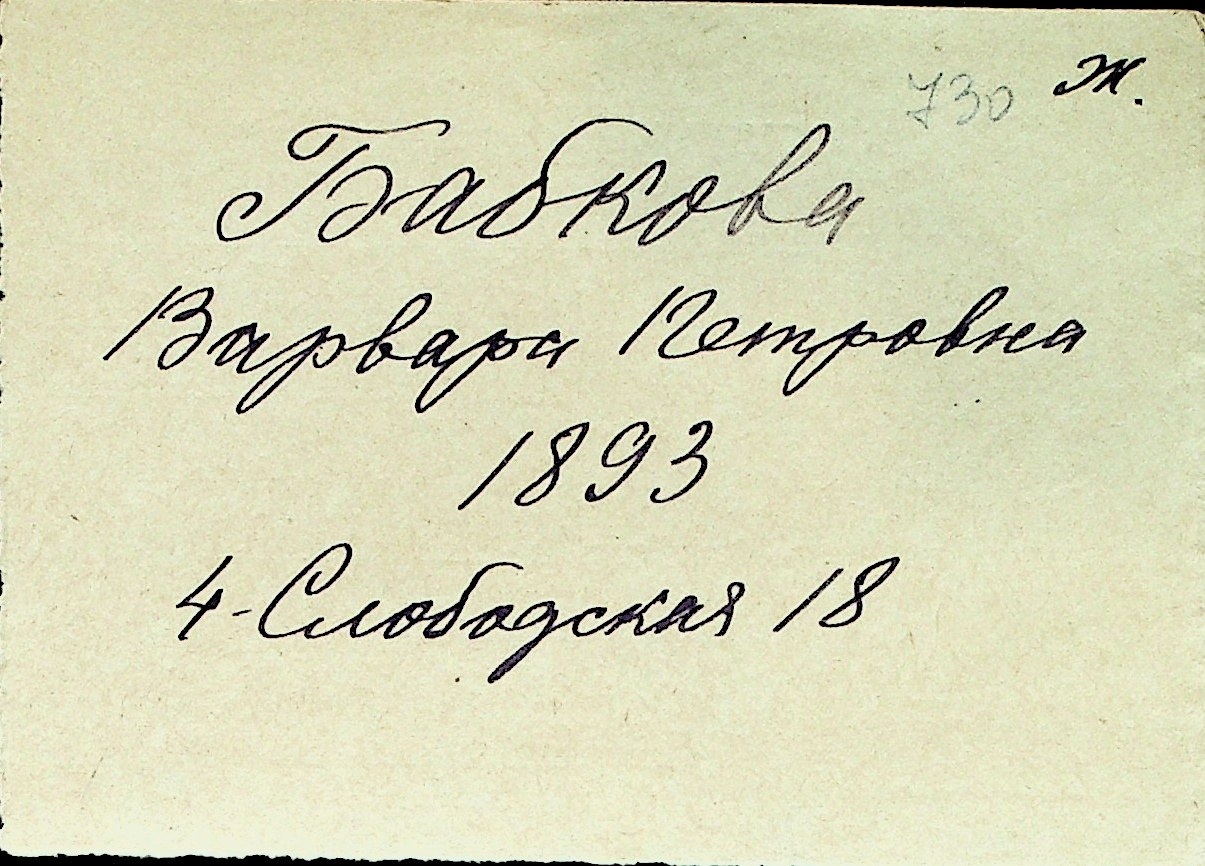 730 Ж.
Бабкова
Варвара Петровна
1893
4-Слободская 18